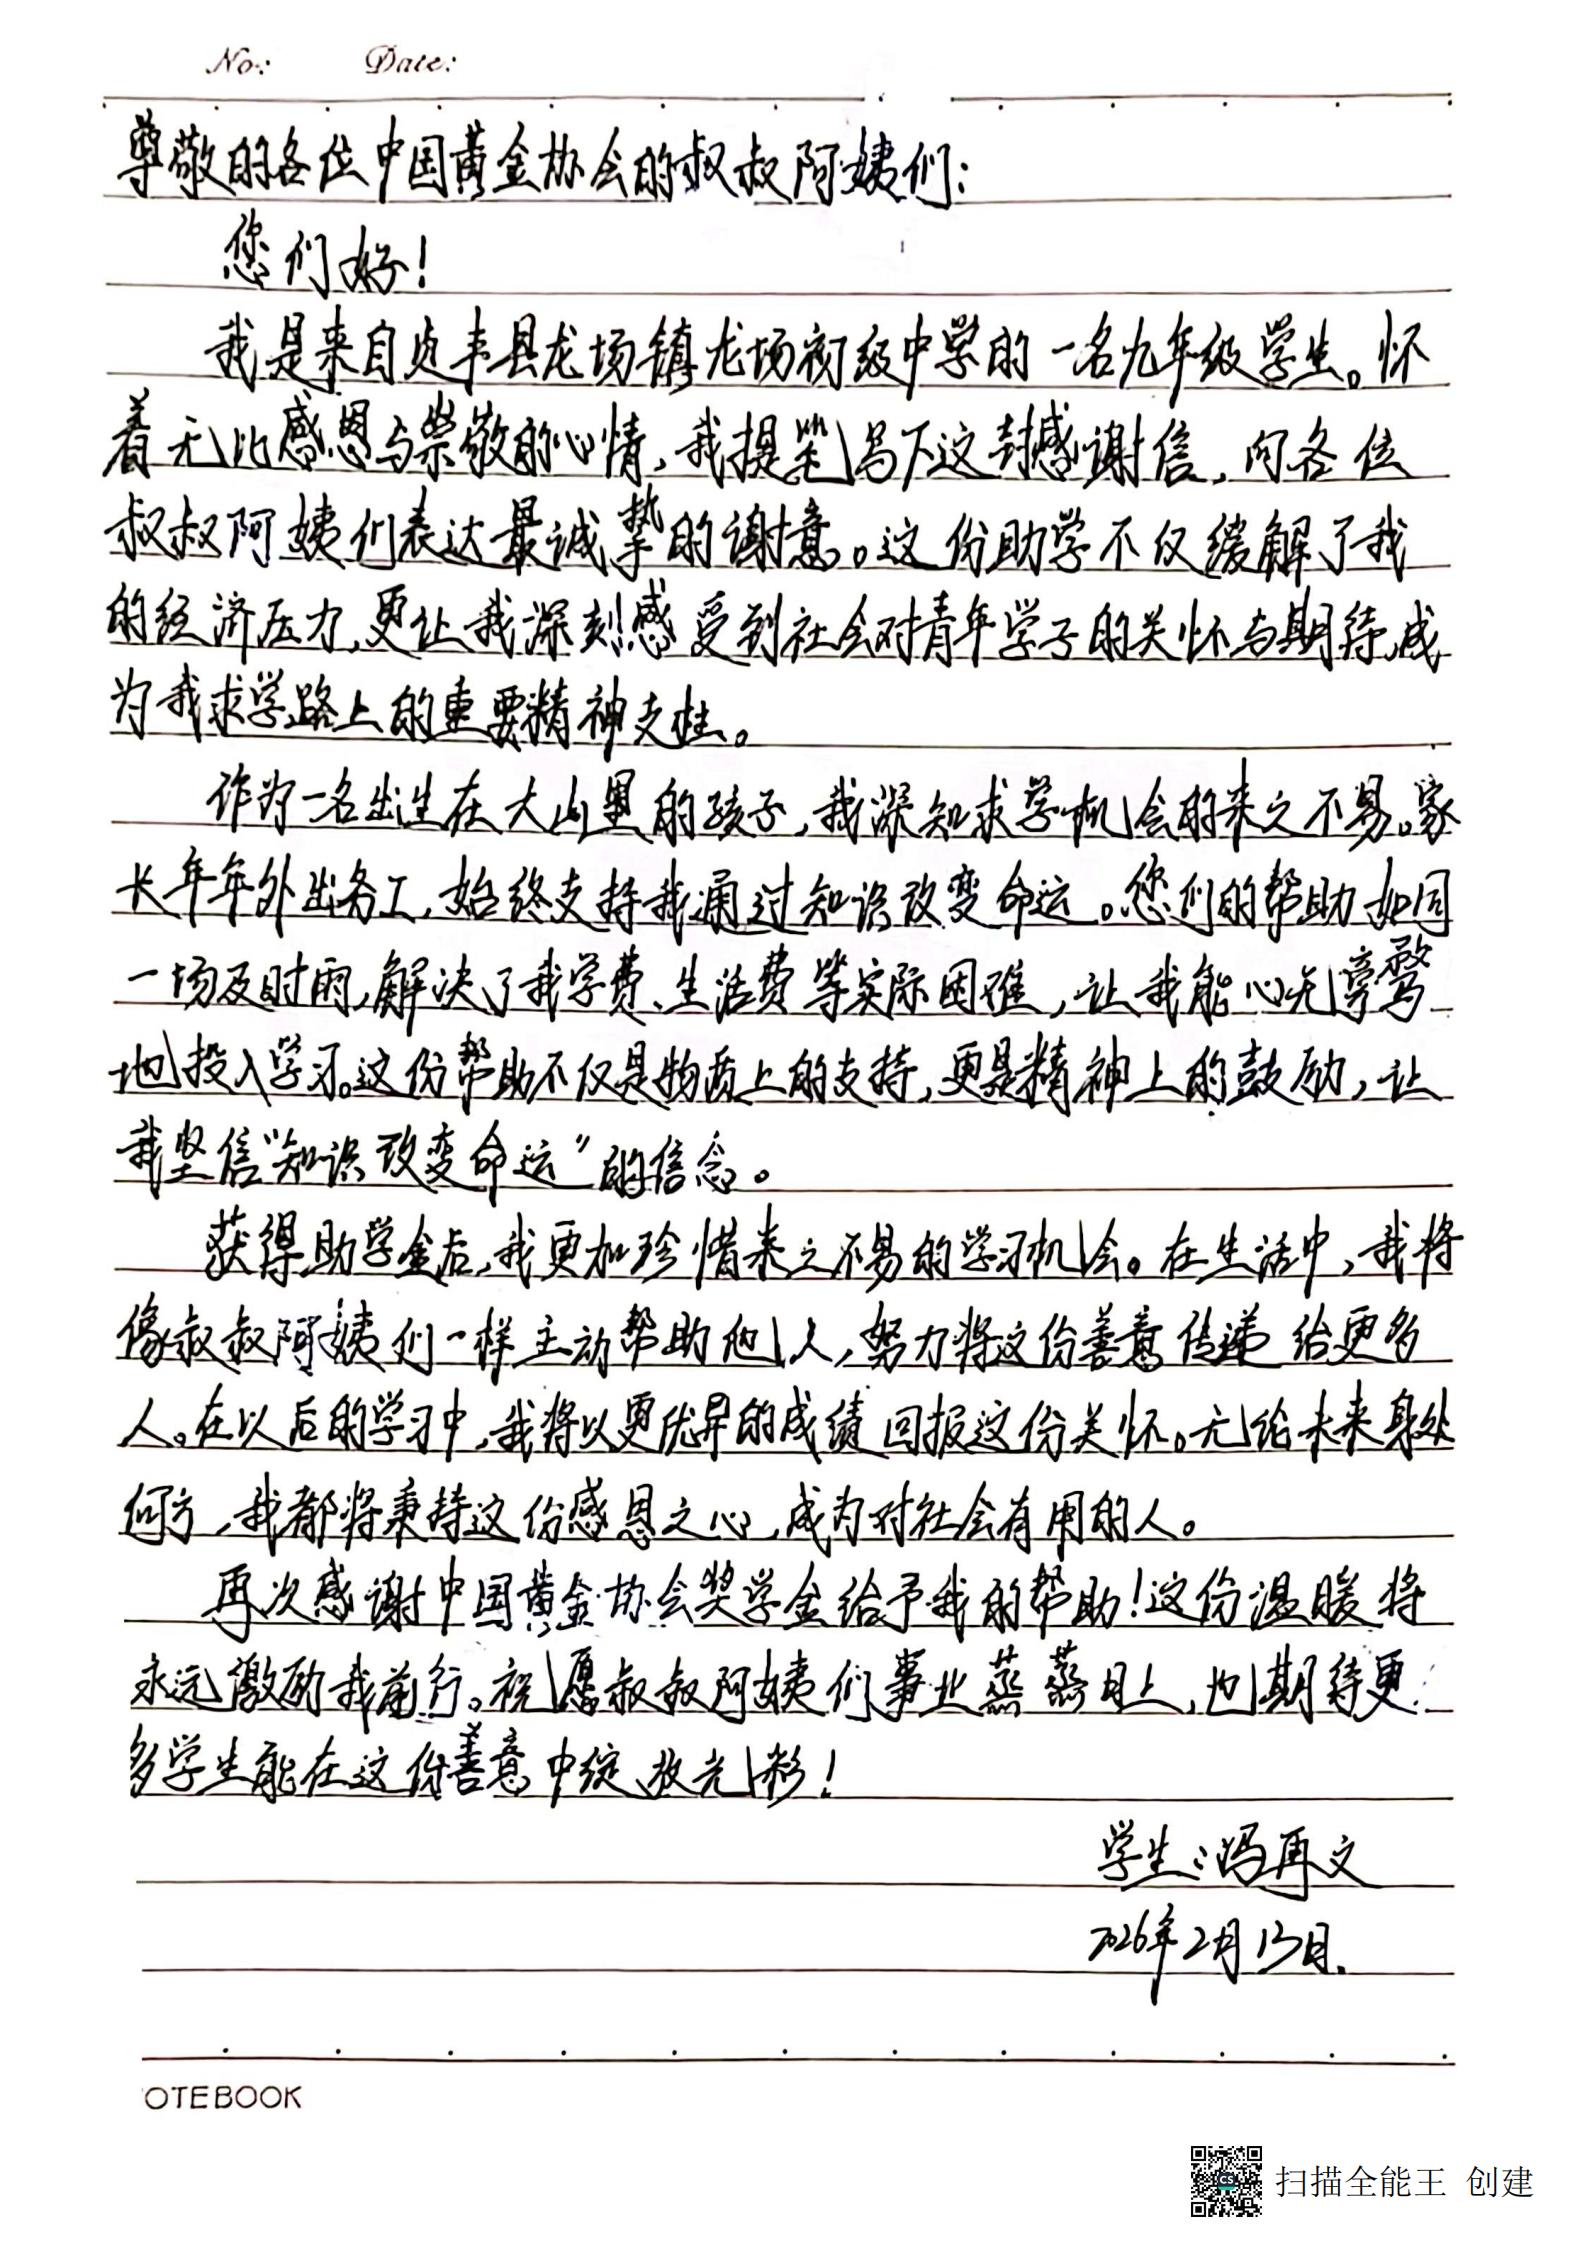 No:    Date:
尊敬的各位中国黄金协会的叔叔阿姨们：
您们好！
我是来自贞丰县龙场镇龙场初级中学的一名九年级学生。怀
着无比感恩与崇敬的心情，我提笔写下这封感谢信，向各位
叔叔阿姨们表达最诚挚的谢意。这份助学不仅缓解了我
的经济压力，更让我深刻感受到社会对青年学子的关怀与期待，成
为我求学路上的重要精神支柱。
作为一名出生在大山里的孩子，我深知求学机会的来之不易。家
长年年外出务工，始终支持我通过知识改变命运。您们的帮助如同
一场及时雨，解决了我学费、生活费等实际困难，让我能心无旁骛
地投入学习。这份帮助不仅是物质上的支持，更是精神上的鼓励，让
我坚信“知识改变命运”的信念。
获得助学金后，我更加珍惜来之不易的学习机会。在生活中，我将
像叔叔阿姨们一样主动帮助他人，努力将这份善意传递给更多
人。在以后的学习中，我将以更优异的成绩回报这份关怀。无论未来身处
何方，我都将秉持这份感恩之心，成为对社会有用的人。
再次感谢中国黄金协会奖学金给予我的帮助！这份温暖将
永远激励我前行。祝愿叔叔阿姨们事业蒸蒸日上，也期待更
多学生能在这份善意中绽放光彩！
学生：冯再文
2026年2月13日.
OTEBOOK
扫描全能王 创建